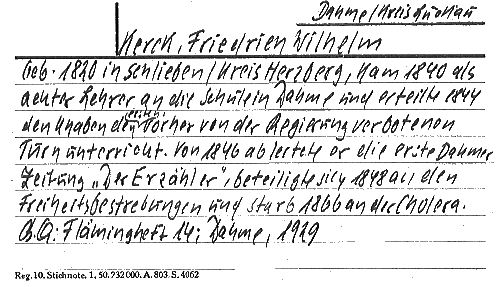 Dahme/Kreis Luckau
Kerck, Friedrich Wilhelm
Geb. 1820 in Schlieben/Kreis Herzberg, kam 1840 als
achter Lehrer an die Schule in Dahme und erteilte 1844
den Knaben den ersten vorher von der Regierung verbotenen
Turnunterricht. Von 1846 ab leitete er die erste Dahmer
Zeitung „Der Erzähler", beteiligte sich 1848 an den
Freiheitsbestrebungen und starb 1866 an der Cholera.
B.Q: Flämingheft 14; Dahme, 1929
Reg. 10. Stichnote. 1, 50. 732 000. A. 803 S. 4062